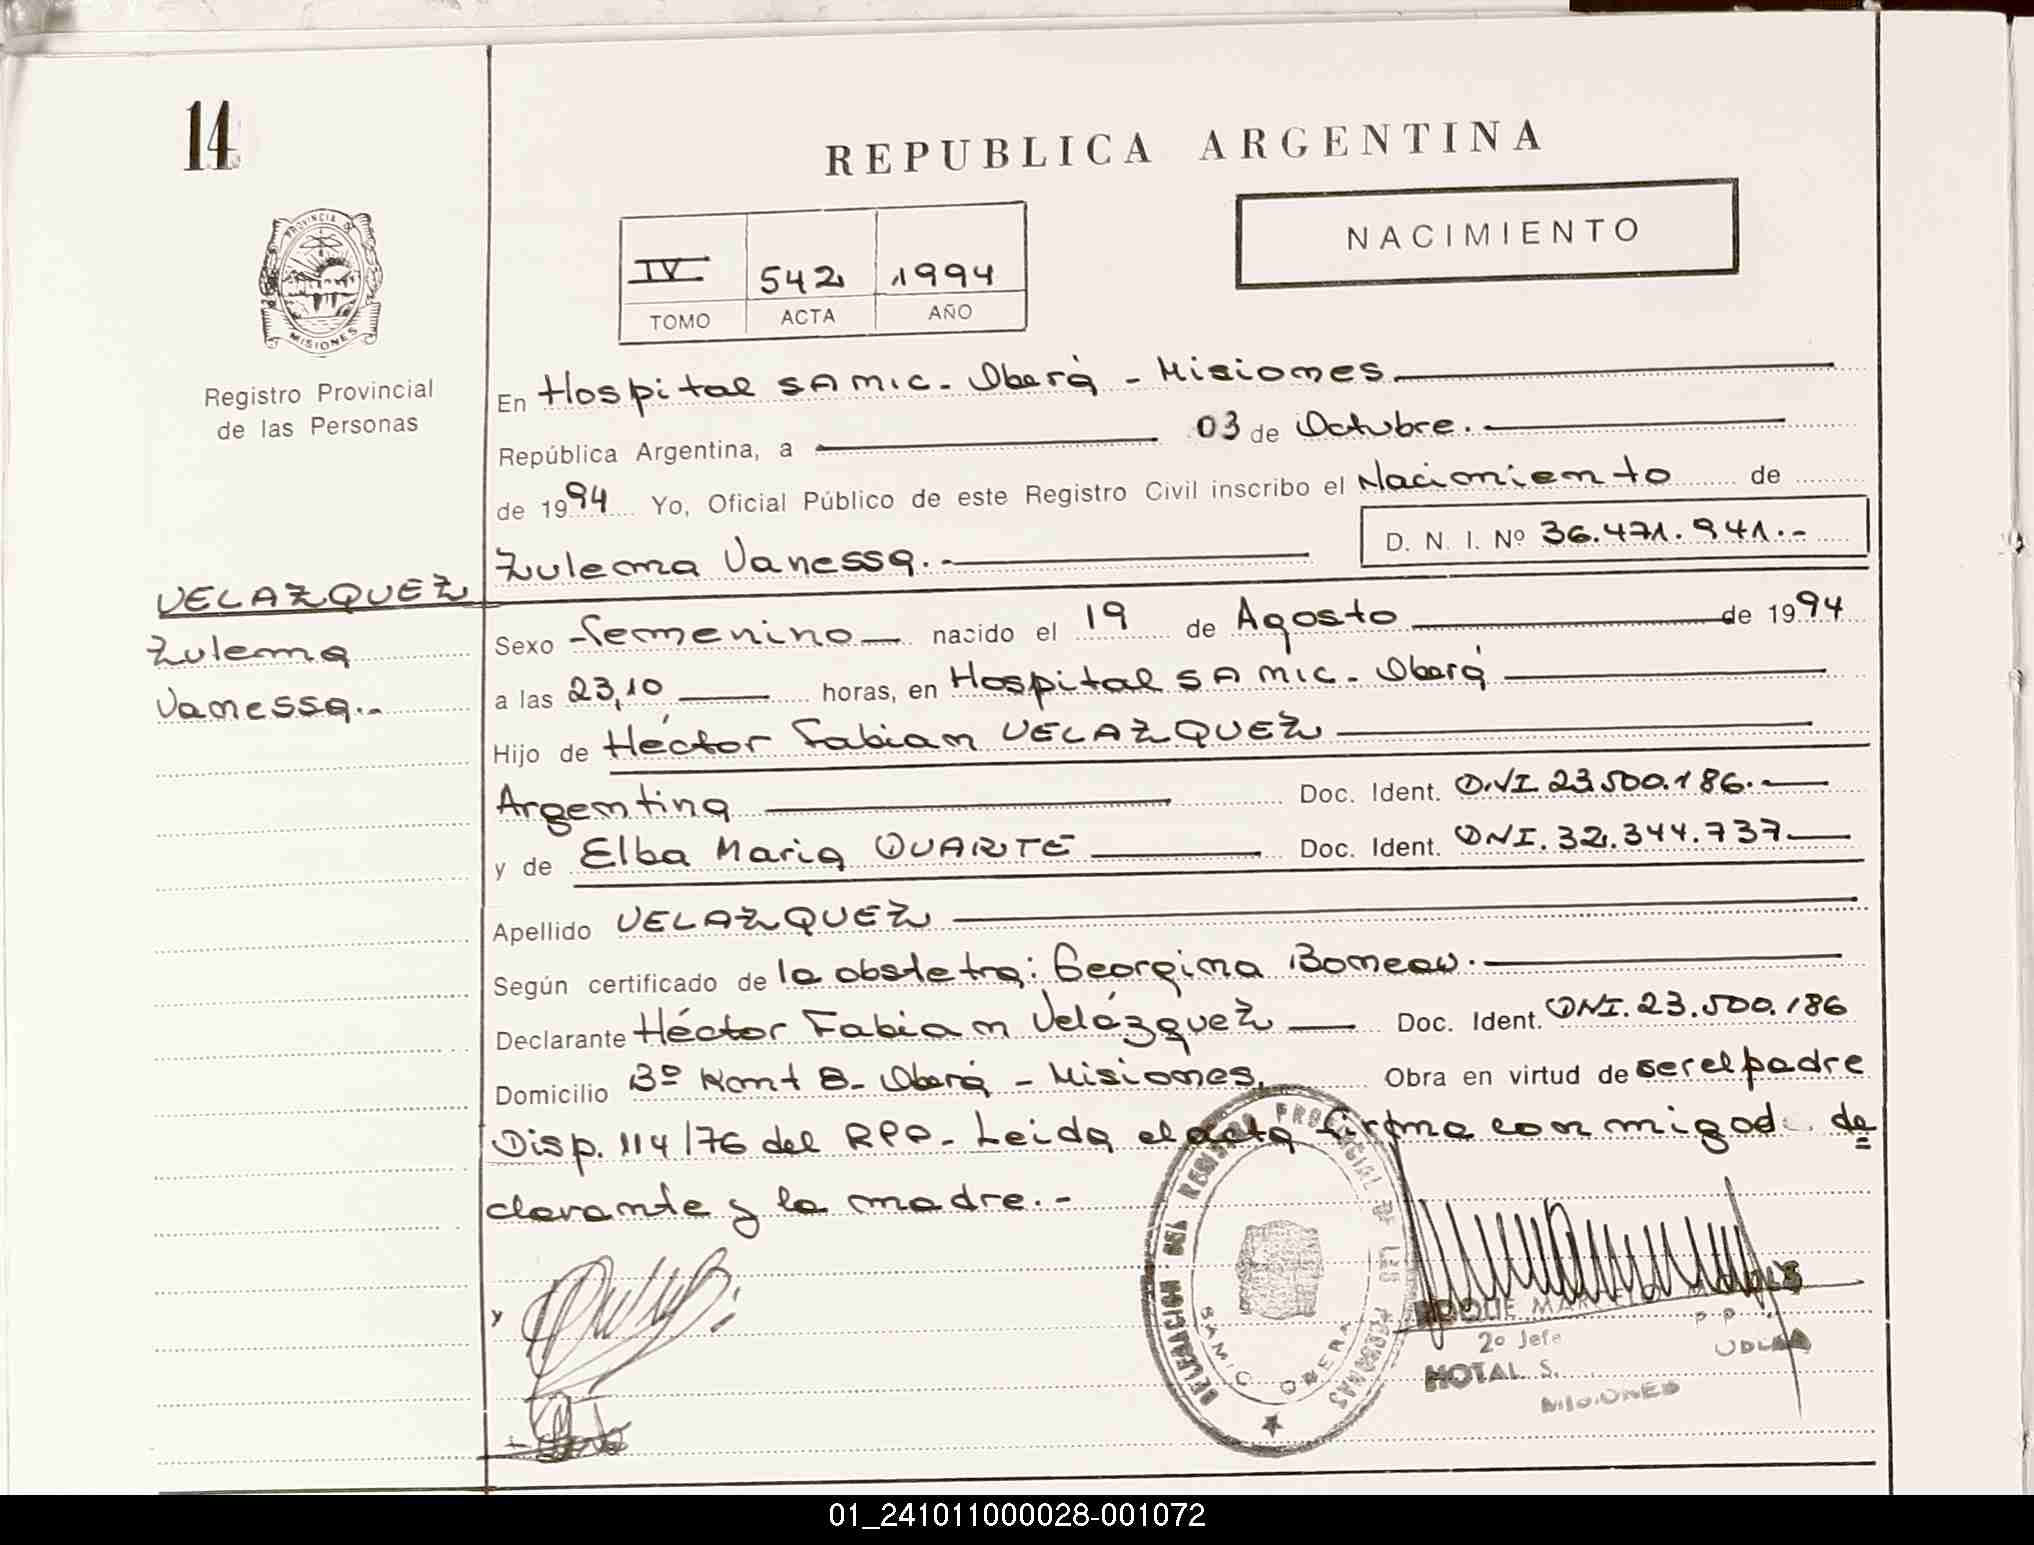 14
REPUBLICA ARGENTINA
NACIMIENTO
IV 542 1994
TOMO ACTA AÑO
PROVINCIA DE MISIONES
Registro Provincial
de las Personas
En Hospital SAMIC. Oberá - Misiones
República Argentina, a 03 de Octubre.
de 1994 Yo, Oficial Público de este Registro Civil inscribo el Nacimiento de
D. N. I. Nº 36.471.941.-
Zulema Vanessa.-
VELAZQUEZ
Zulema
Vanessa.-
Sexo femenino nacido el 19 de Agosto de 1994
a las 23,10 horas, en Hospital SAMIC. Oberá
Hijo de Héctor Fabian VELAZQUEZ
Argentina Doc. Ident. DNI. 23.500.186.-
y de Elba Maria DUARTE Doc. Ident. DNI. 32.344.737
Apellido VELAZQUEZ
Según certificado de la obstetra: Georgina
Declarante Héctor Fabian Velázquez Doc. Ident. DNI. 23.500.186
Domicilio Bº Kont 8- Oberá - Misiones. Obra en virtud de ser el padre
Disp. 114/76 del RPP- Leida el acta firma conmigo de
clarante y la madre.-
REGISTRO PROVINCIAL DE LAS PERSONAS
DELEGACION
SAMIC OBERA
ROQUE
2º Jefe
HOTAL S.
MISIONES
01_241011000028-001072